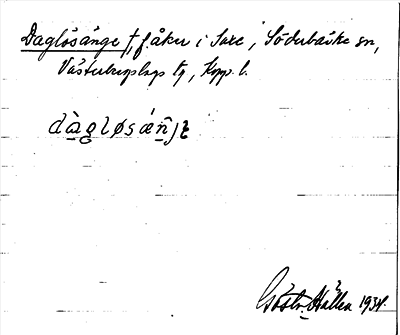 Daglösänge †, f. åker i Saxe, Söderbärke sn,
Västerbergslags tg, Kopp. l.
dàgløsǽñjɛ
Gösta Hallen 1934.